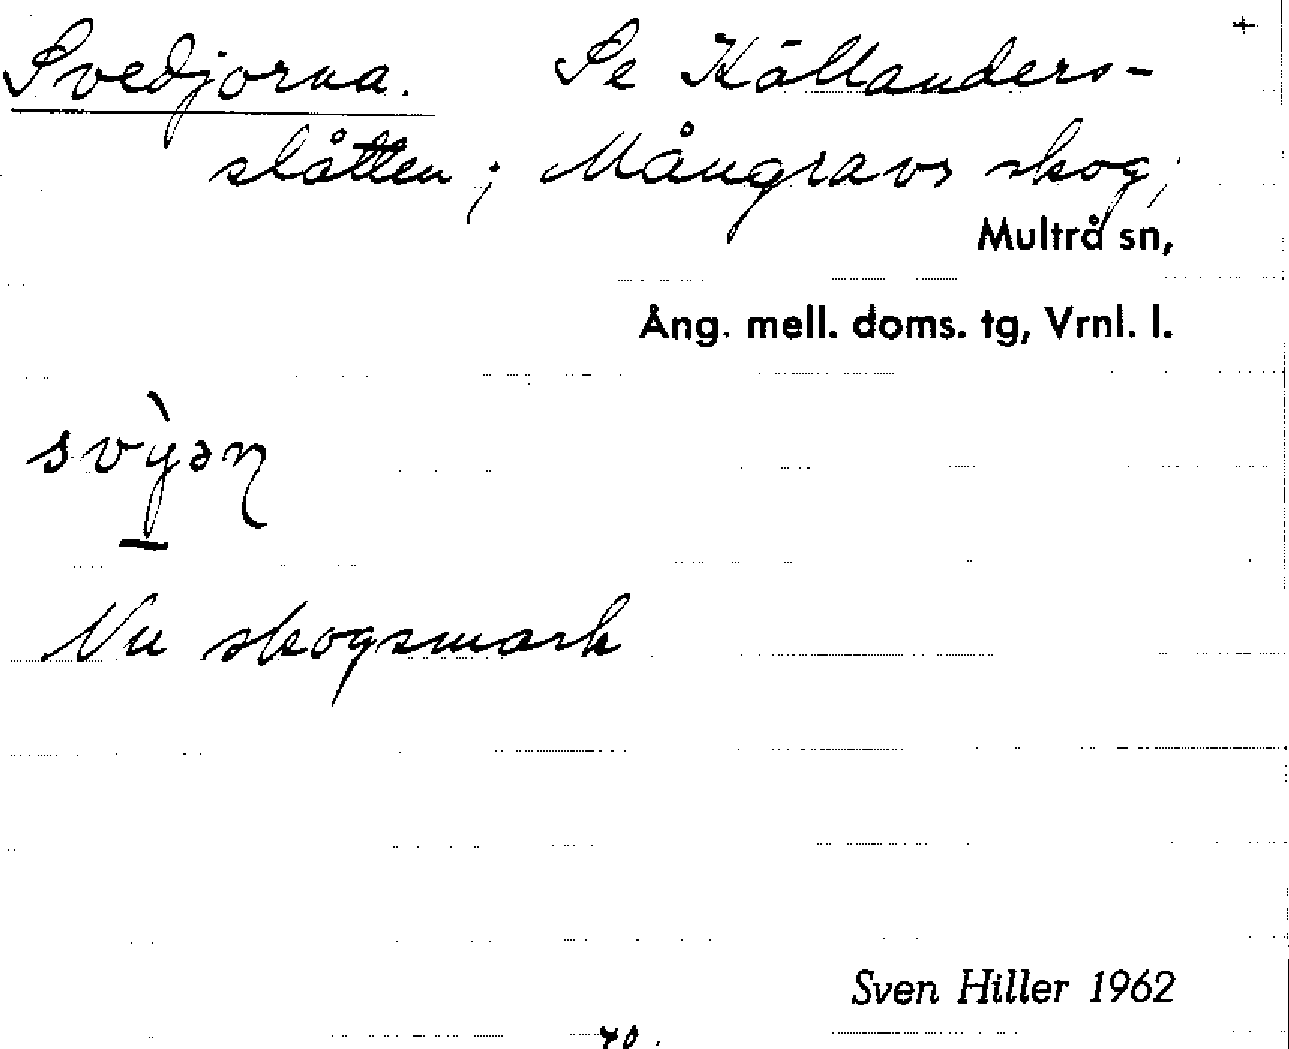 +
Svedjorna. Se Källanders-
slåtten; Mångravs skog,
Multrå sn,
Ång. mell. doms. tg, Vrnl. l.
svỳəη
Nu skogsmark
Sven Hiller 1962
40.